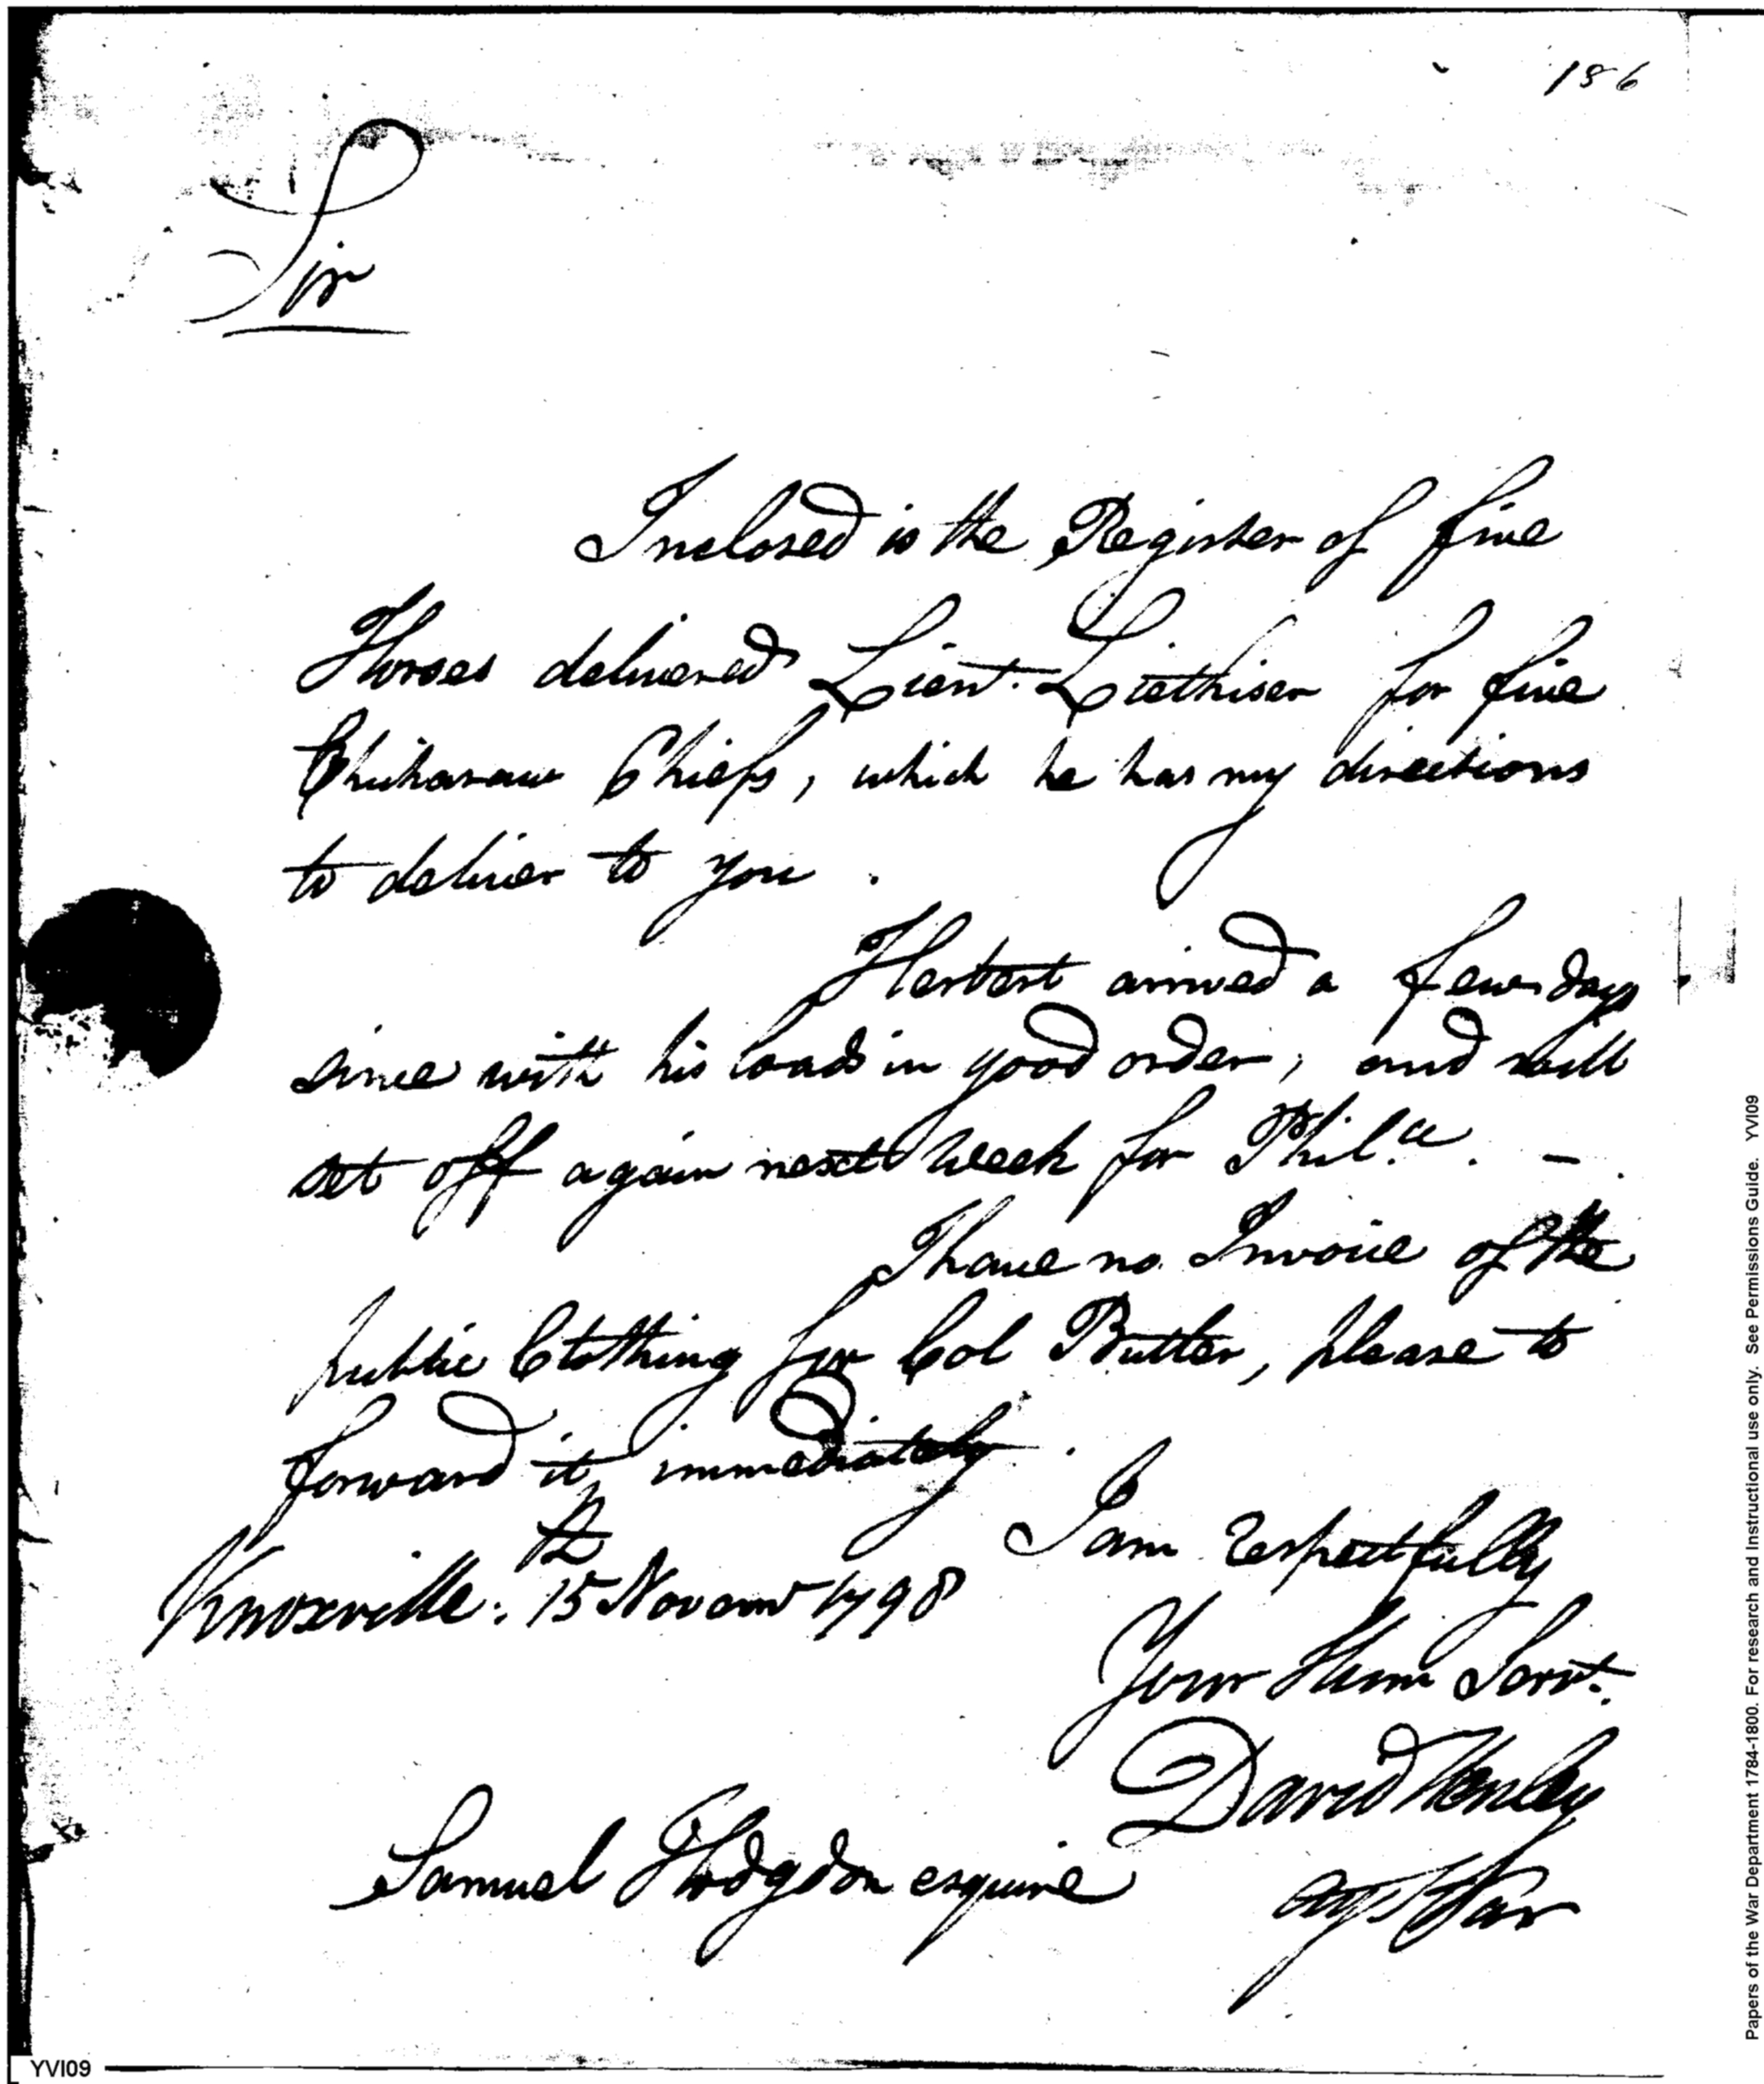 186
Sir
Inclosed is the Register of five
Horses delivered Lieut. Liethiser for five
Chickasaw Chiefs, which he has my directions
to deliver to you.
Herbert arrived a few days
since with his loads in good order, and will
set off again next week for Phil.a. -
I have no Invoice of the
public Clothing for Col Butler, please to
forward it immediately.
I am Respectfully
Knoxville: 15th Novemr 1798
Your Hum Servt.
David Henley
Samuel Hodgdon esquire
agt War
YVI09
Papers of the War Department 1784-1800. For research and Instructional use only. See Permissions Guide. YVI09